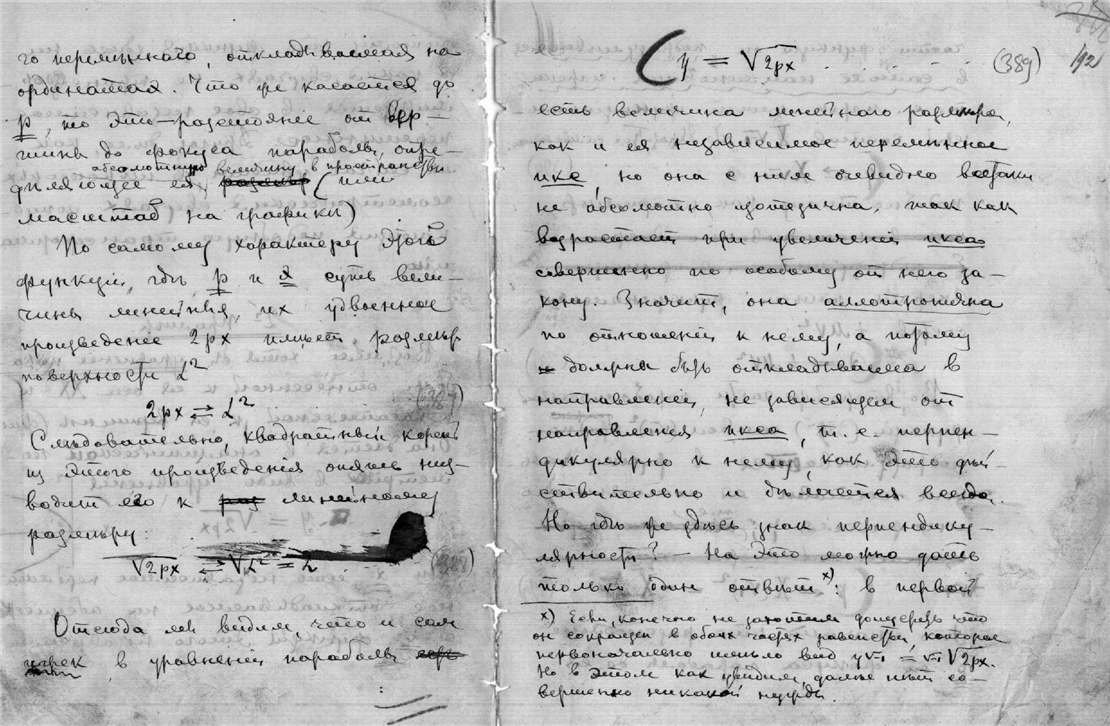 го перемѣннаго, откладываемая на
ординатах. Что же касается до
p, то это—разстояніе от вер-
шины до фокуса параболы, опре-
абсолютную величину в пространствѣ
дѣляющее ея (или
масштаб на графикѣ)
По самому характеру этой
функціи, гдѣ p и x суть вели-
чины линейныя, их удвоенное
произведеніе 2px имѣет размѣр
поверхности L²
2px ⇄ L²
Слѣдовательно, квадратный корень
из этого произведенія опять низ-
водит его к линейному
размѣру:
√2px ⇄ √L² = L
Отсюда мы видим, что и сам
игрек в уравненіи параболы
y = √2px . . . . . . (389)
192
есть величина линейнаго размѣра,
как и ея независимое перемѣнное
икс, но она с ним очевидно всетаки
не абсолютно тождественна, так как
возрастает при увеличеніи икса
совершенно по особому от него за-
кону. Значит, она аллотропична
по отношенію к нему, а потому
должна быть откладываема в
направленіи, не зависящем от
направленія икса, т. е. перпен-
дикулярно к нему, как это дѣй-
ствительно и дѣлается всегда.
Но гдѣ же здѣсь знак перпендику-
лярности? — На это можно дать
только один отвѣт x): в первой
x) Если, конечно не захотим допустить что
он сокращен в обоих частях равенства, которое
первоначально имѣло вид y√-1 = √-1 √2px.
Но в этом как увидим, далѣе нѣт со-
вершенно никакой нужды.